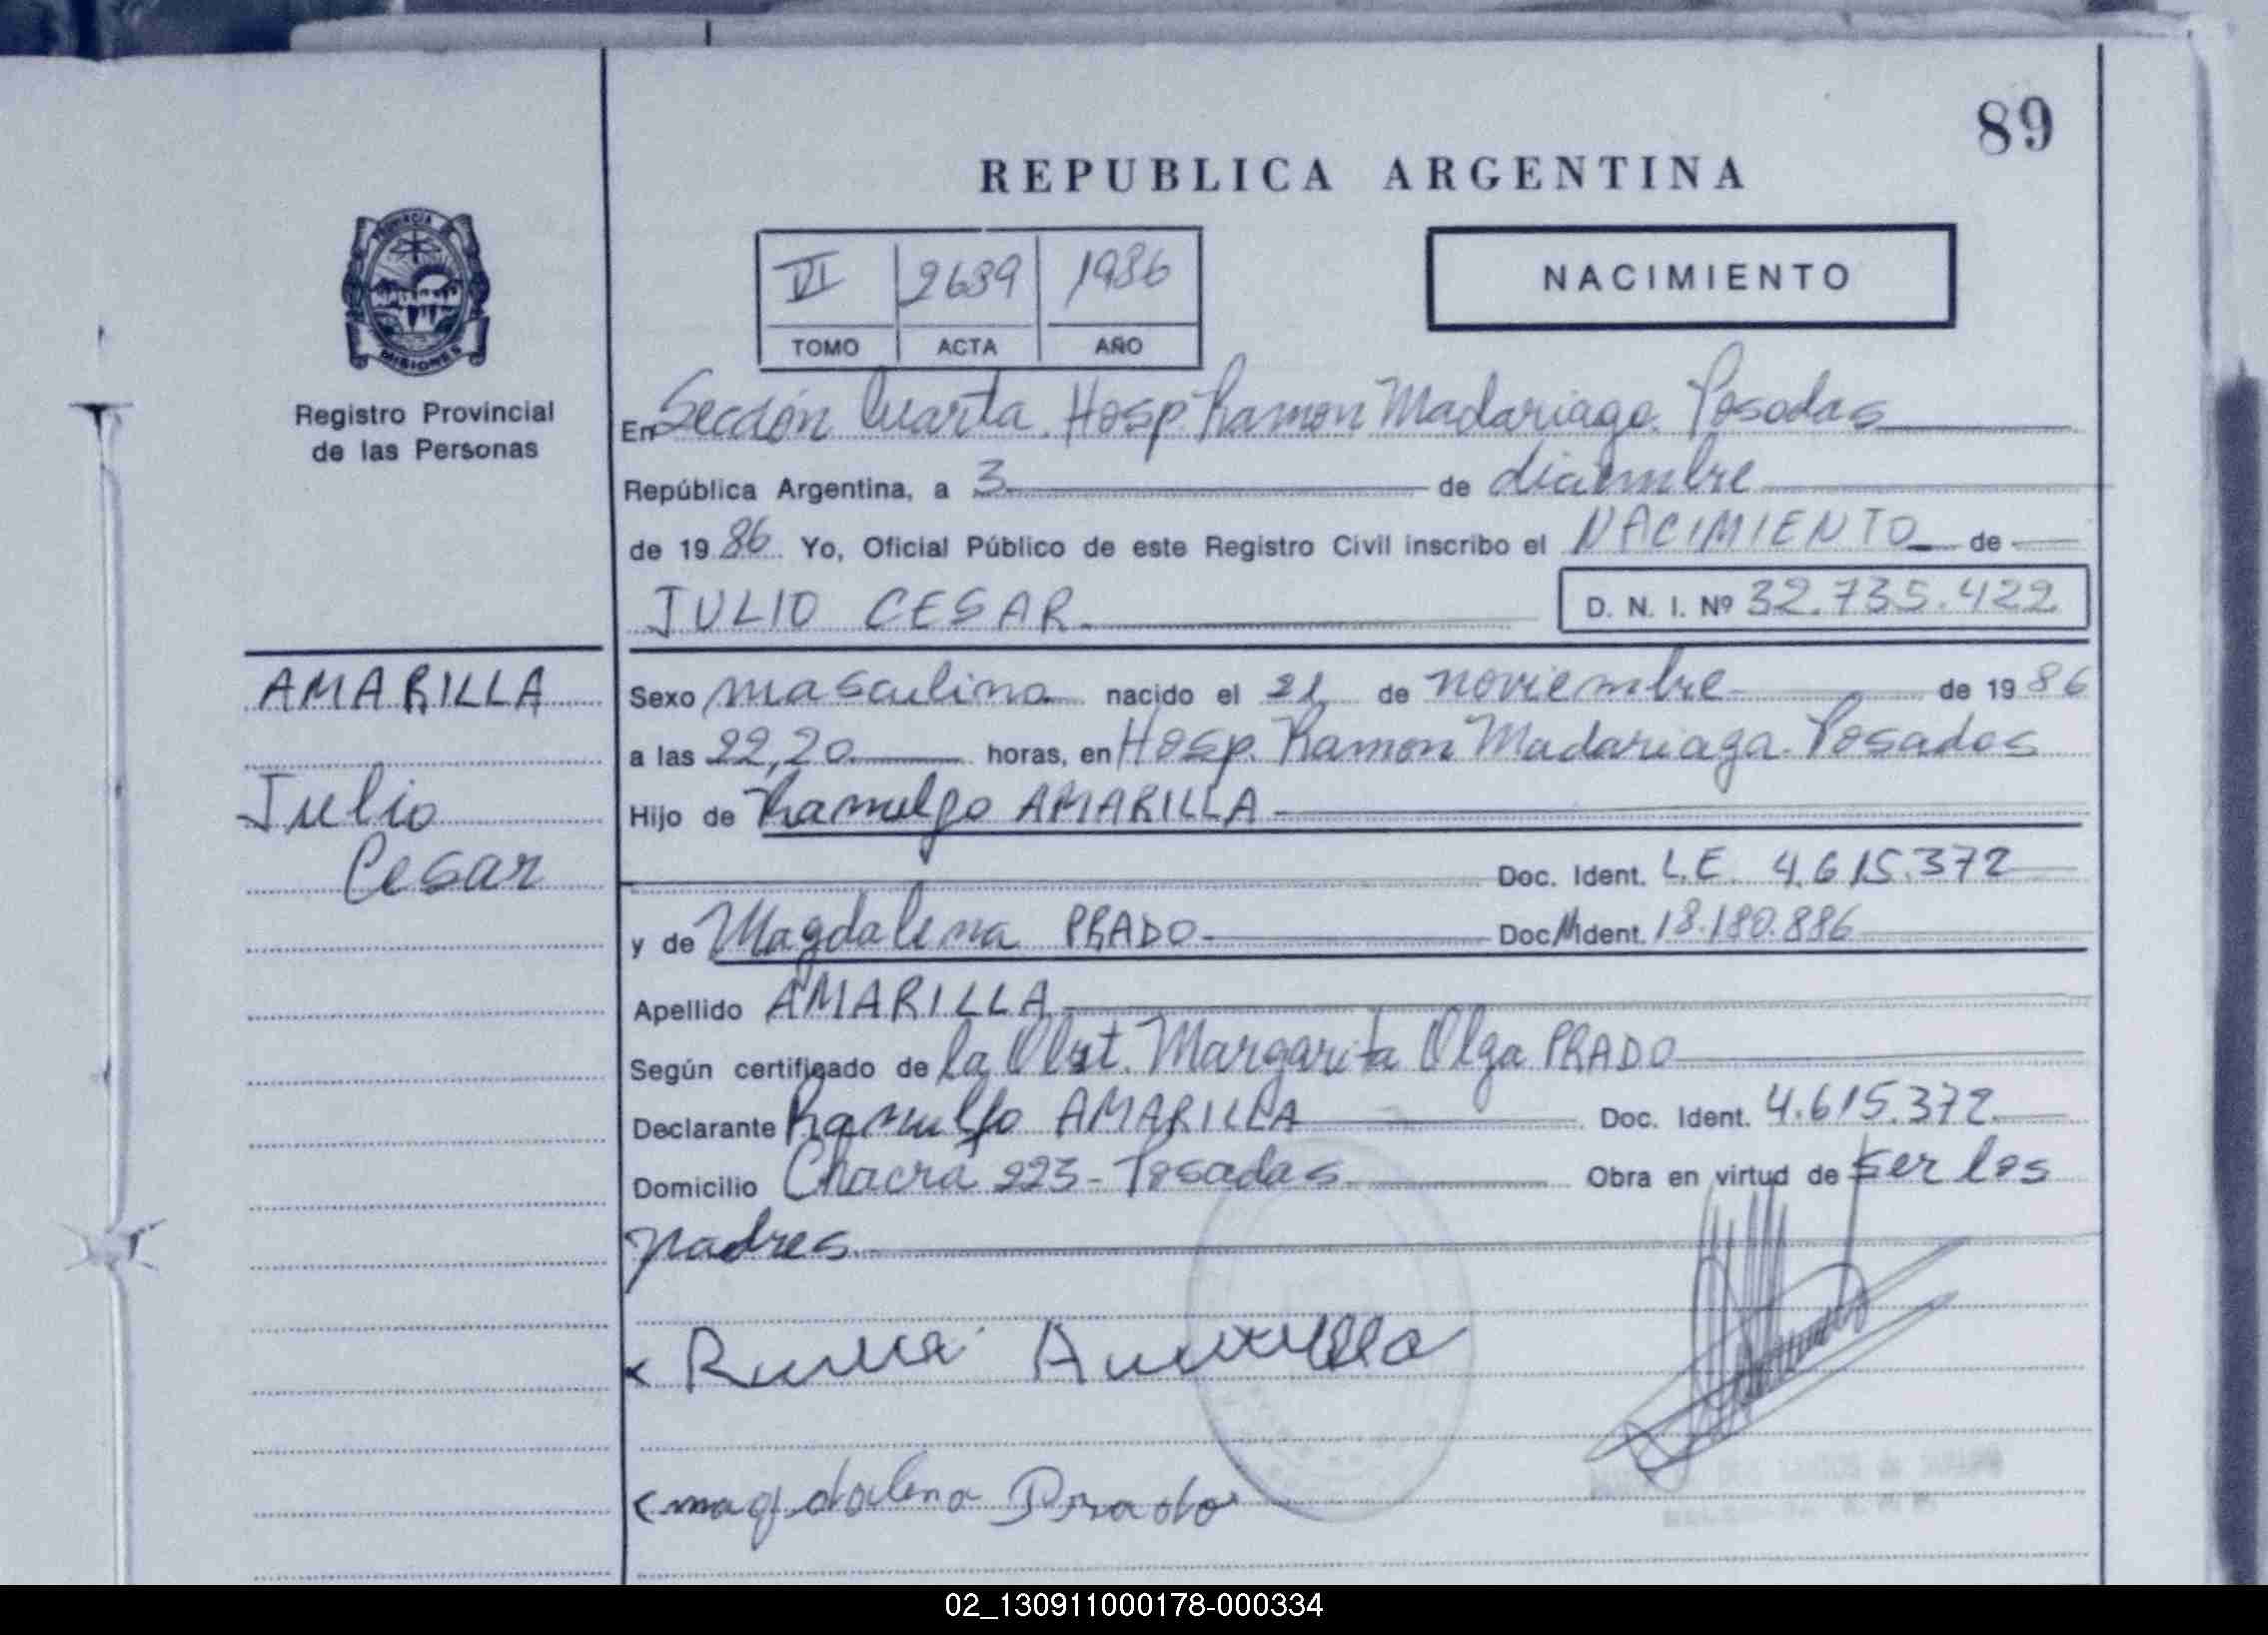 89
REPUBLICA ARGENTINA
PROVINCIA DE
MISIONES
Registro Provincial
de las Personas
VI 2639 1986
TOMO ACTA AÑO
NACIMIENTO
En Sección Cuarta. Hosp. Ramon Madariaga. Posadas
República Argentina, a 3 de diciembre
de 1986 Yo, Oficial Público de este Registro Civil inscribo el NACIMIENTO de
JULIO CESAR D. N. I. Nº 32.735.422
AMARILLA
Julio
Cesar
Sexo masculino nacido el 21 de noviembre de 1986
a las 22,20 horas, en Hosp. Ramon Madariaga. Posadas
Hijo de Ramulfo AMARILLA
Doc. Ident. L.E. 4.615.372
y de Magdalena PRADO Doc. Ident. 18.180.886
Apellido AMARILLA
Según certificado de la Obst. Margarita Olga PRADO
Declarante Ramulfo AMARILLA Doc. Ident. 4.615.372
Domicilio Chacra 223 - Posadas Obra en virtud de ser los
padres
Amarilla
magdalena Prado
02_130911000178-000334